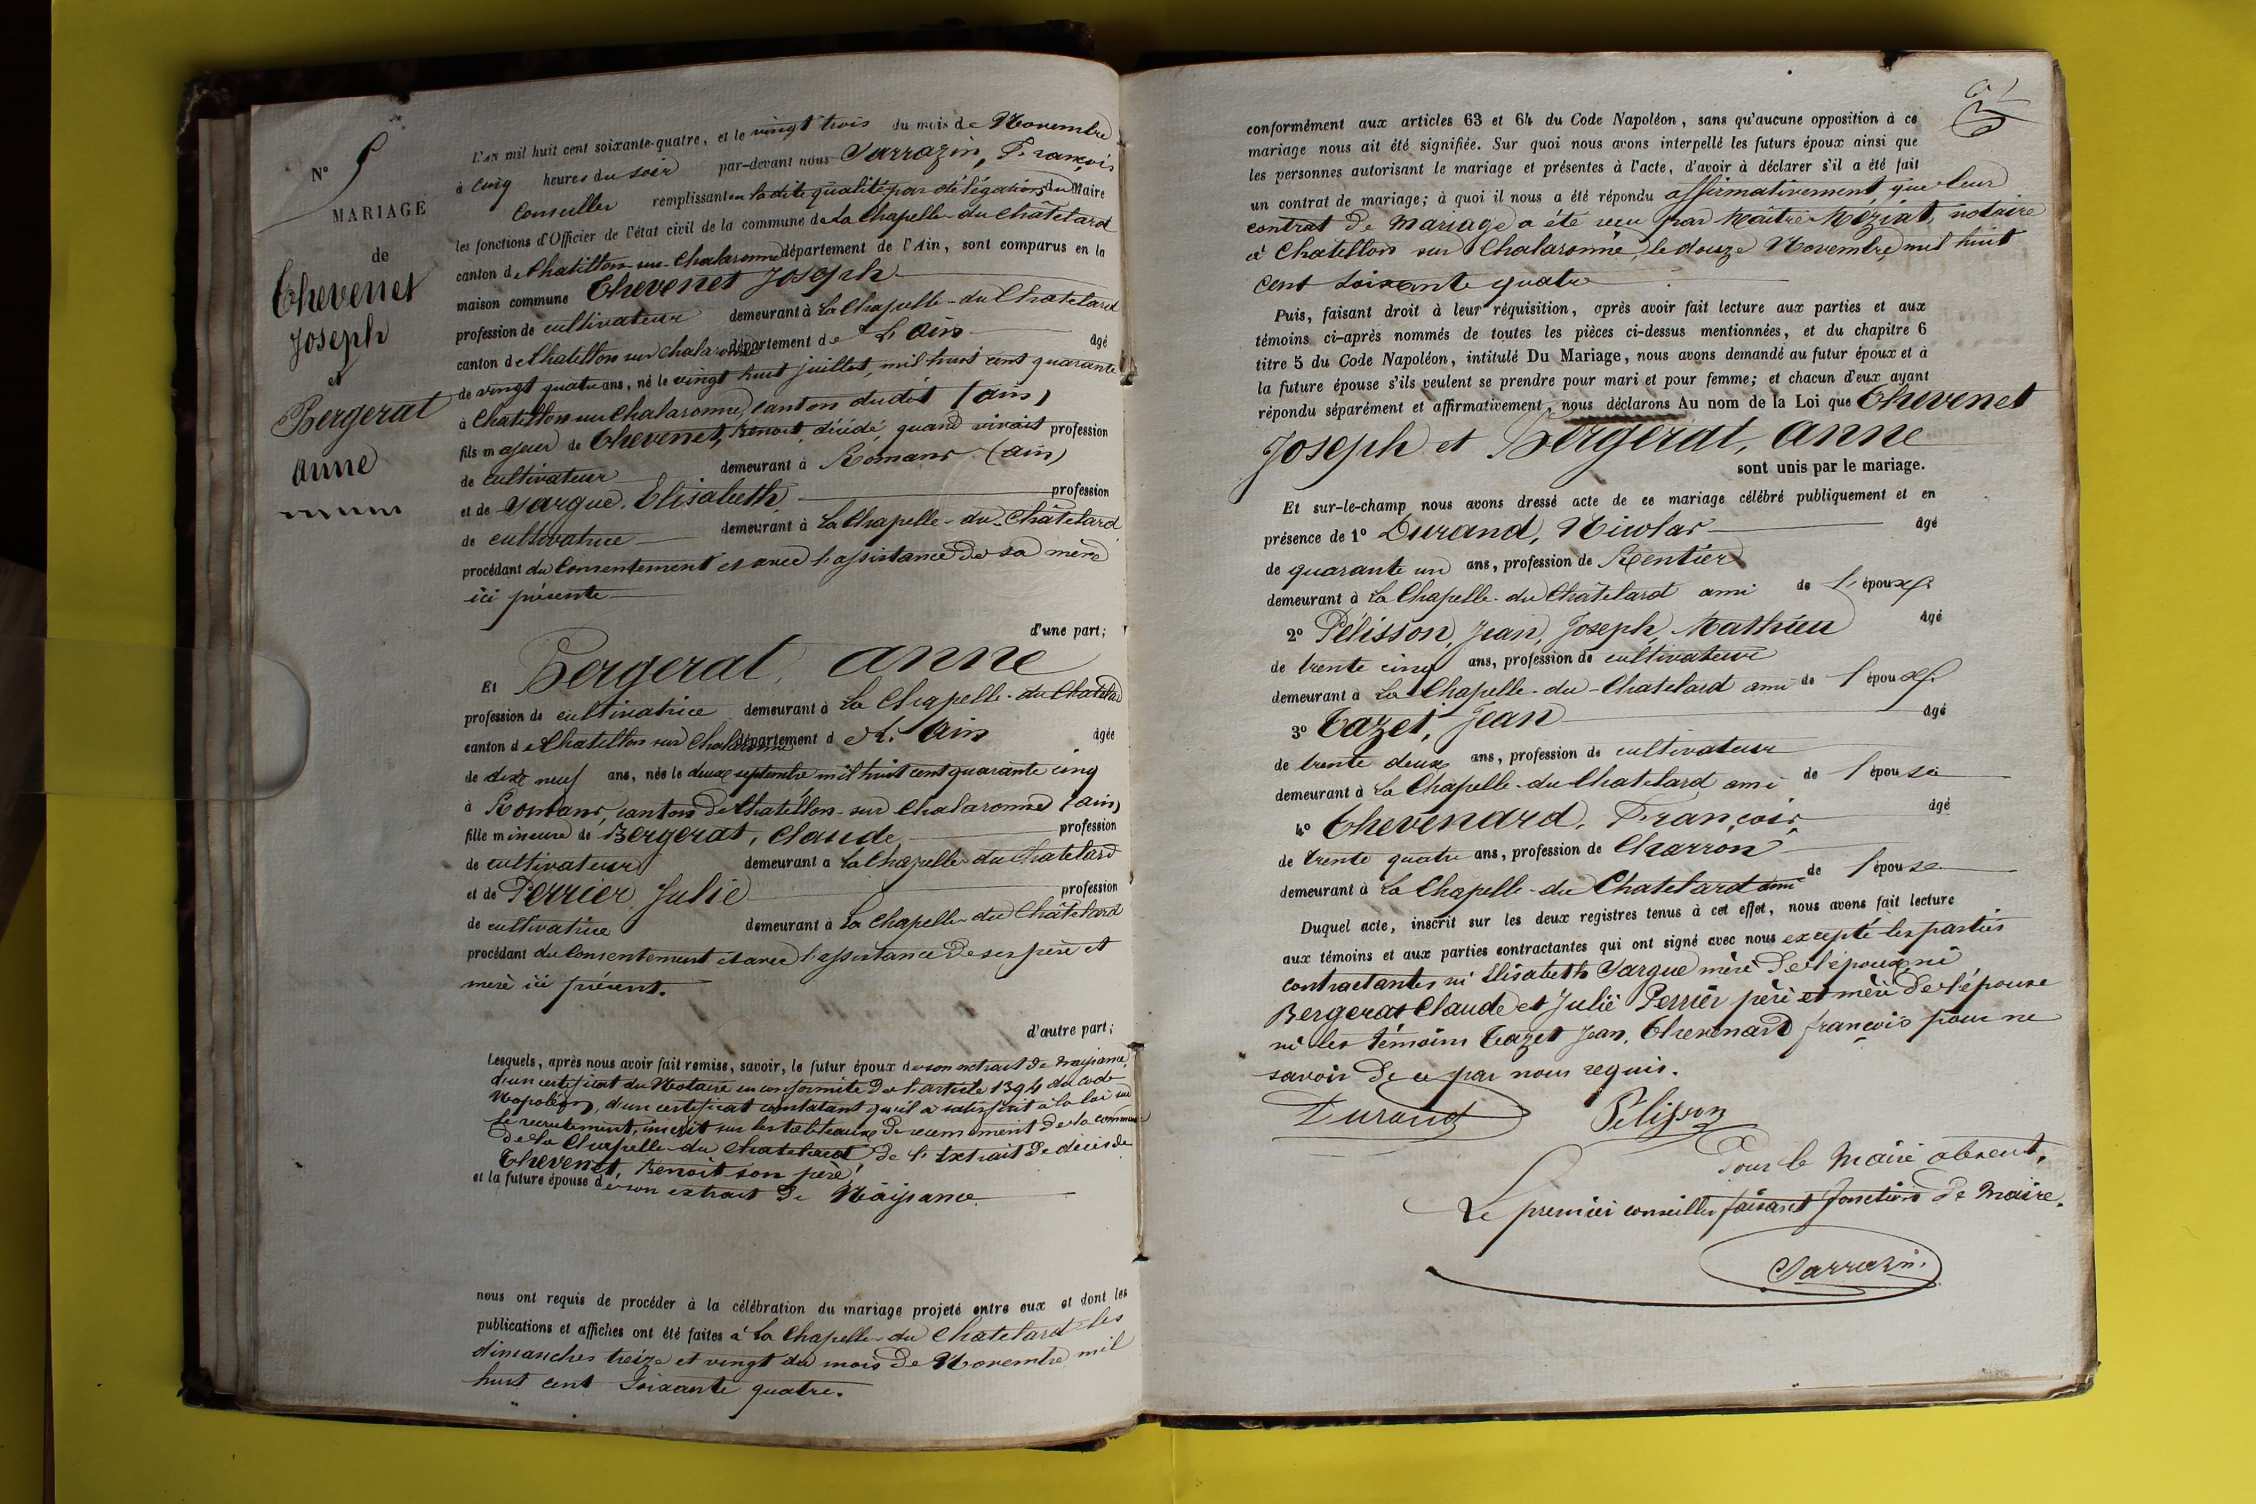 N° 5
MARIAGE
de
Thevenet
Joseph
et
Bergerat
anne
L'AN mil huit cent soixante-quatre, et le vingt trois du mois de Novembre
à cinq heures du soir par-devant nous Sarrazin, François
Conseiller remplissant en la dite qualité par délégation du Maire
les fonctions d'Officier de l'état civil de la commune de La Chapelle-du Châtelard
canton de Chatillon-sur-Chalaronne département de l'Ain, sont comparus en la
maison commune Thevenet Joseph
profession de cultivateur demeurant à La Chapelle-du Chatelard
canton de Chatillon sur Chalaronne département de L'Ain âgé
de vingt quatre ans, né le vingt huit juillet, mil huit cent quarante
à Chatillon sur Chalaronne, canton dudit (Ain)
fils majeur de Thevenet, Benoit, décédé, quand vivait profession
de cultivateur demeurant à Romans (Ain)
et de Sargue, Elisabeth profession
de cultivatrice demeurant à La Chapelle-du-Châtelard
procédant du Consentement et avec l'assistance de sa mère
ici présente
d'une part;
Et Bergerat, anne
profession de cultivatrice demeurant à La Chapelle-du Chatelard
canton de Chatillon sur Chalaronne département de L'Ain âgée
de dix neuf ans, née le deux septembre mil huit cent quarante cinq
à Romans, canton de Chatillon-sur Chalaronne (ain)
fille mineure de Bergerat, Claude profession
de cultivateur demeurant à La Chapelle du Chatelard
et de Perrier Julie profession
de cultivatrice demeurant à La Chapelle-du Châtelard
procédant du Consentement et avec l'assistance de ses père et
mère ici présent.
d'autre part;
Lesquels, après nous avoir fait remise, savoir, le futur époux de son extrait de naissance,
d'un certificat du Notaire en conformité de l'article 1394 du code
Napoléon, d'un certificat constatant qu'il a satisfait à la loi sur
le recrutement, inscrit sur les tableaux de recensement de la commune
de la Chapelle-du Chatelard de l'Extrait de décès de
Thevenet, Benoit son père,
et la future épouse de son extrait de Naissance.
nous ont requis de procéder à la célébration du mariage projeté entre eux et dont les
publications et affiches ont été faites à La Chapelle-du Chatelard les
dimanches treize et vingt du mois de Novembre mil
huit cent soixante quatre.
conformément aux articles 63 et 64 du Code Napoléon, sans qu'aucune opposition à ce
mariage nous ait été signifiée. Sur quoi nous avons interpellé les futurs époux ainsi que
les personnes autorisant le mariage et présentes à l'acte, d'avoir à déclarer s'il a été fait
un contrat de mariage; à quoi il nous a été répondu affirmativement que leur
contrat de Mariage a été reçu par Maître Mériat, notaire
à Chatillon sur Chalaronne, le douze Novembre mil huit
cent soixante quatre
Puis, faisant droit à leur réquisition, après avoir fait lecture aux parties et aux
témoins ci-après nommés de toutes les pièces ci-dessus mentionnées, et du chapitre 6
titre 5 du Code Napoléon, intitulé Du Mariage, nous avons demandé au futur époux et à
la future épouse s'ils veulent se prendre pour mari et pour femme; et chacun d'eux ayant
répondu séparément et affirmativement, nous déclarons Au nom de la Loi que Thevenet
Joseph et Bergerat, anne
sont unis par le mariage.
Et sur-le-champ nous avons dressé acte de ce mariage célébré publiquement et en
présence de 1° Durand, Nicolas âgé
de quarante un ans, profession de Rentier
demeurant à La Chapelle-du Châtelard ami de l'époux
2° Pélisson, Jean, Joseph, Mathieu âgé
de trente cinq ans, profession de cultivateur
demeurant à La Chapelle-du-Chatelard ami de l'époux
3° Tazet, Jean âgé
de trente deux ans, profession de cultivateur
demeurant à La Chapelle-du Chatelard, ami de l'épouse
4° Thevenard, François, âgé
de trente quatre ans, profession de Charron
demeurant à La Chapelle-du Chatelard ami de l'épouse
Duquel acte, inscrit sur les deux registres tenus à cet effet, nous avons fait lecture
aux témoins et aux parties contractantes qui ont signé avec nous excepté les parties
contractantes ni Elisabeth Sargue mère de l'époux, ni
Bergerat Claude et Julie Perrier père et mère de l'épouse
ni les témoins Tazet Jean, Thevenard françois pour ne
savoir de ce par nous requis.
Durand Pelisson
Pour le Maire absent,
Le premier conseiller faisant fonctions de Maire.
Sarrazin